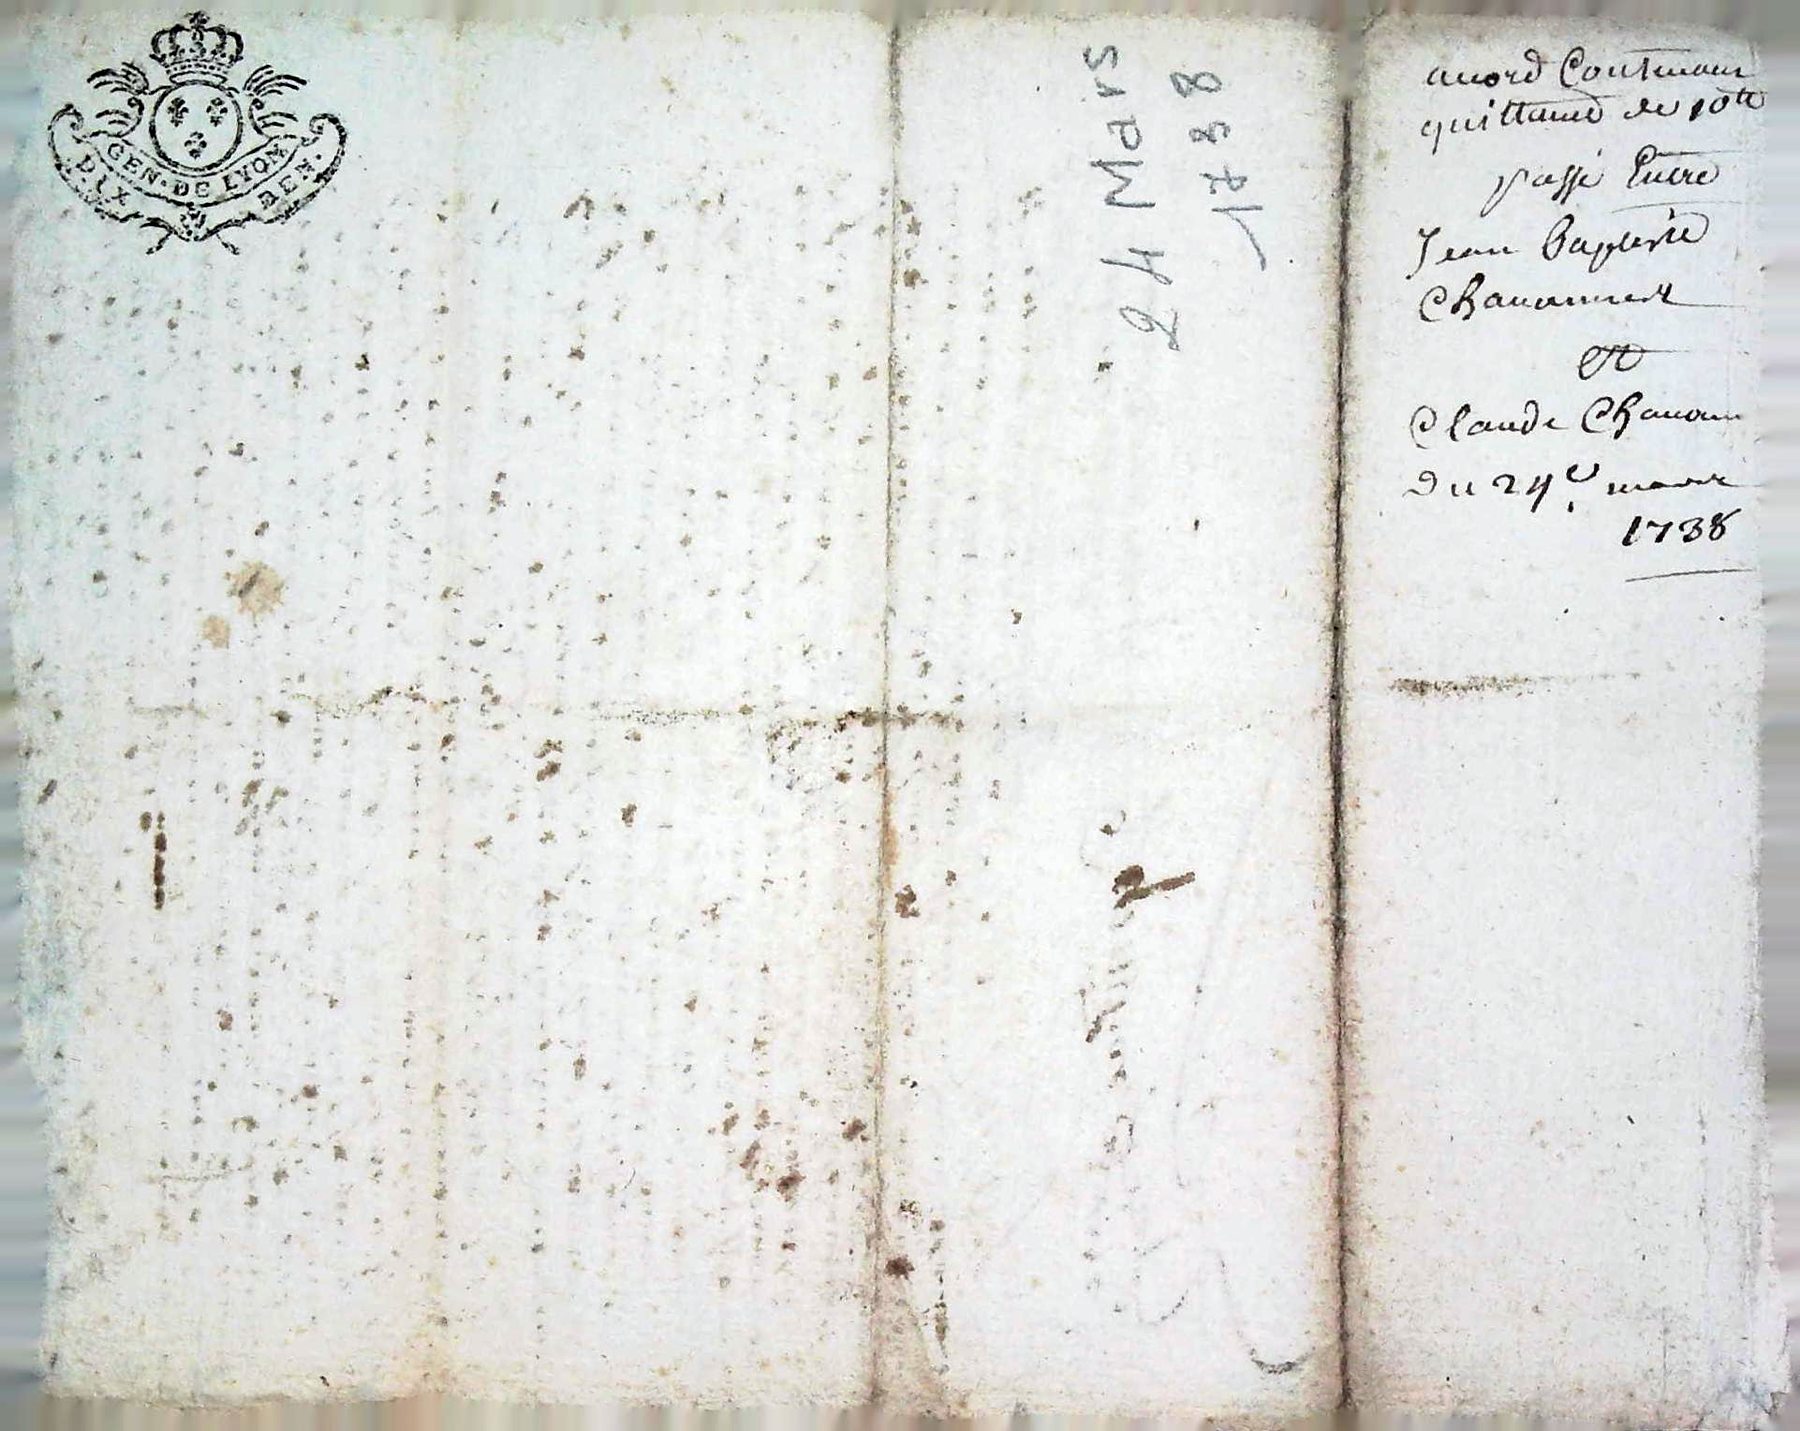 GEN · DE LYON
DIX
24 Mars
1738
accord Contenant
quittance de 10tt
passé Entre
Jean Baptiste
Chauanne
et
Claude Chauann
du 24e mars
1738